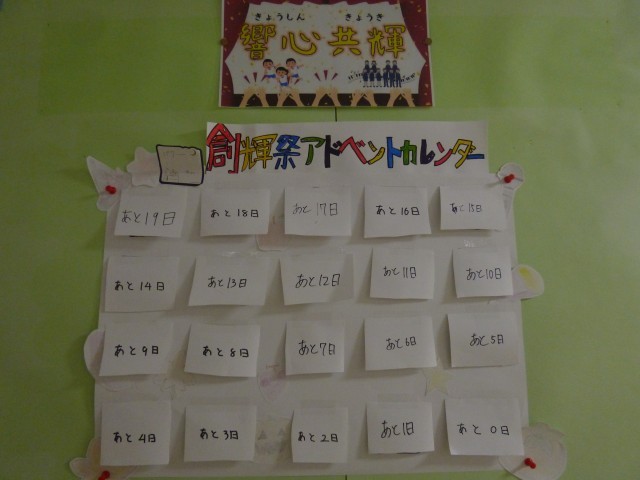 きょうしん きょうき
響心共輝
創輝祭アドベントカレンダー
あと19日 あと18日 あと17日 あと16日 あと15日
あと14日 あと13日 あと12日 あと11日 あと10日
あと9日 あと8日 あと7日 あと6日 あと5日
あと4日 あと3日 あと2日 あと1日 あと0日